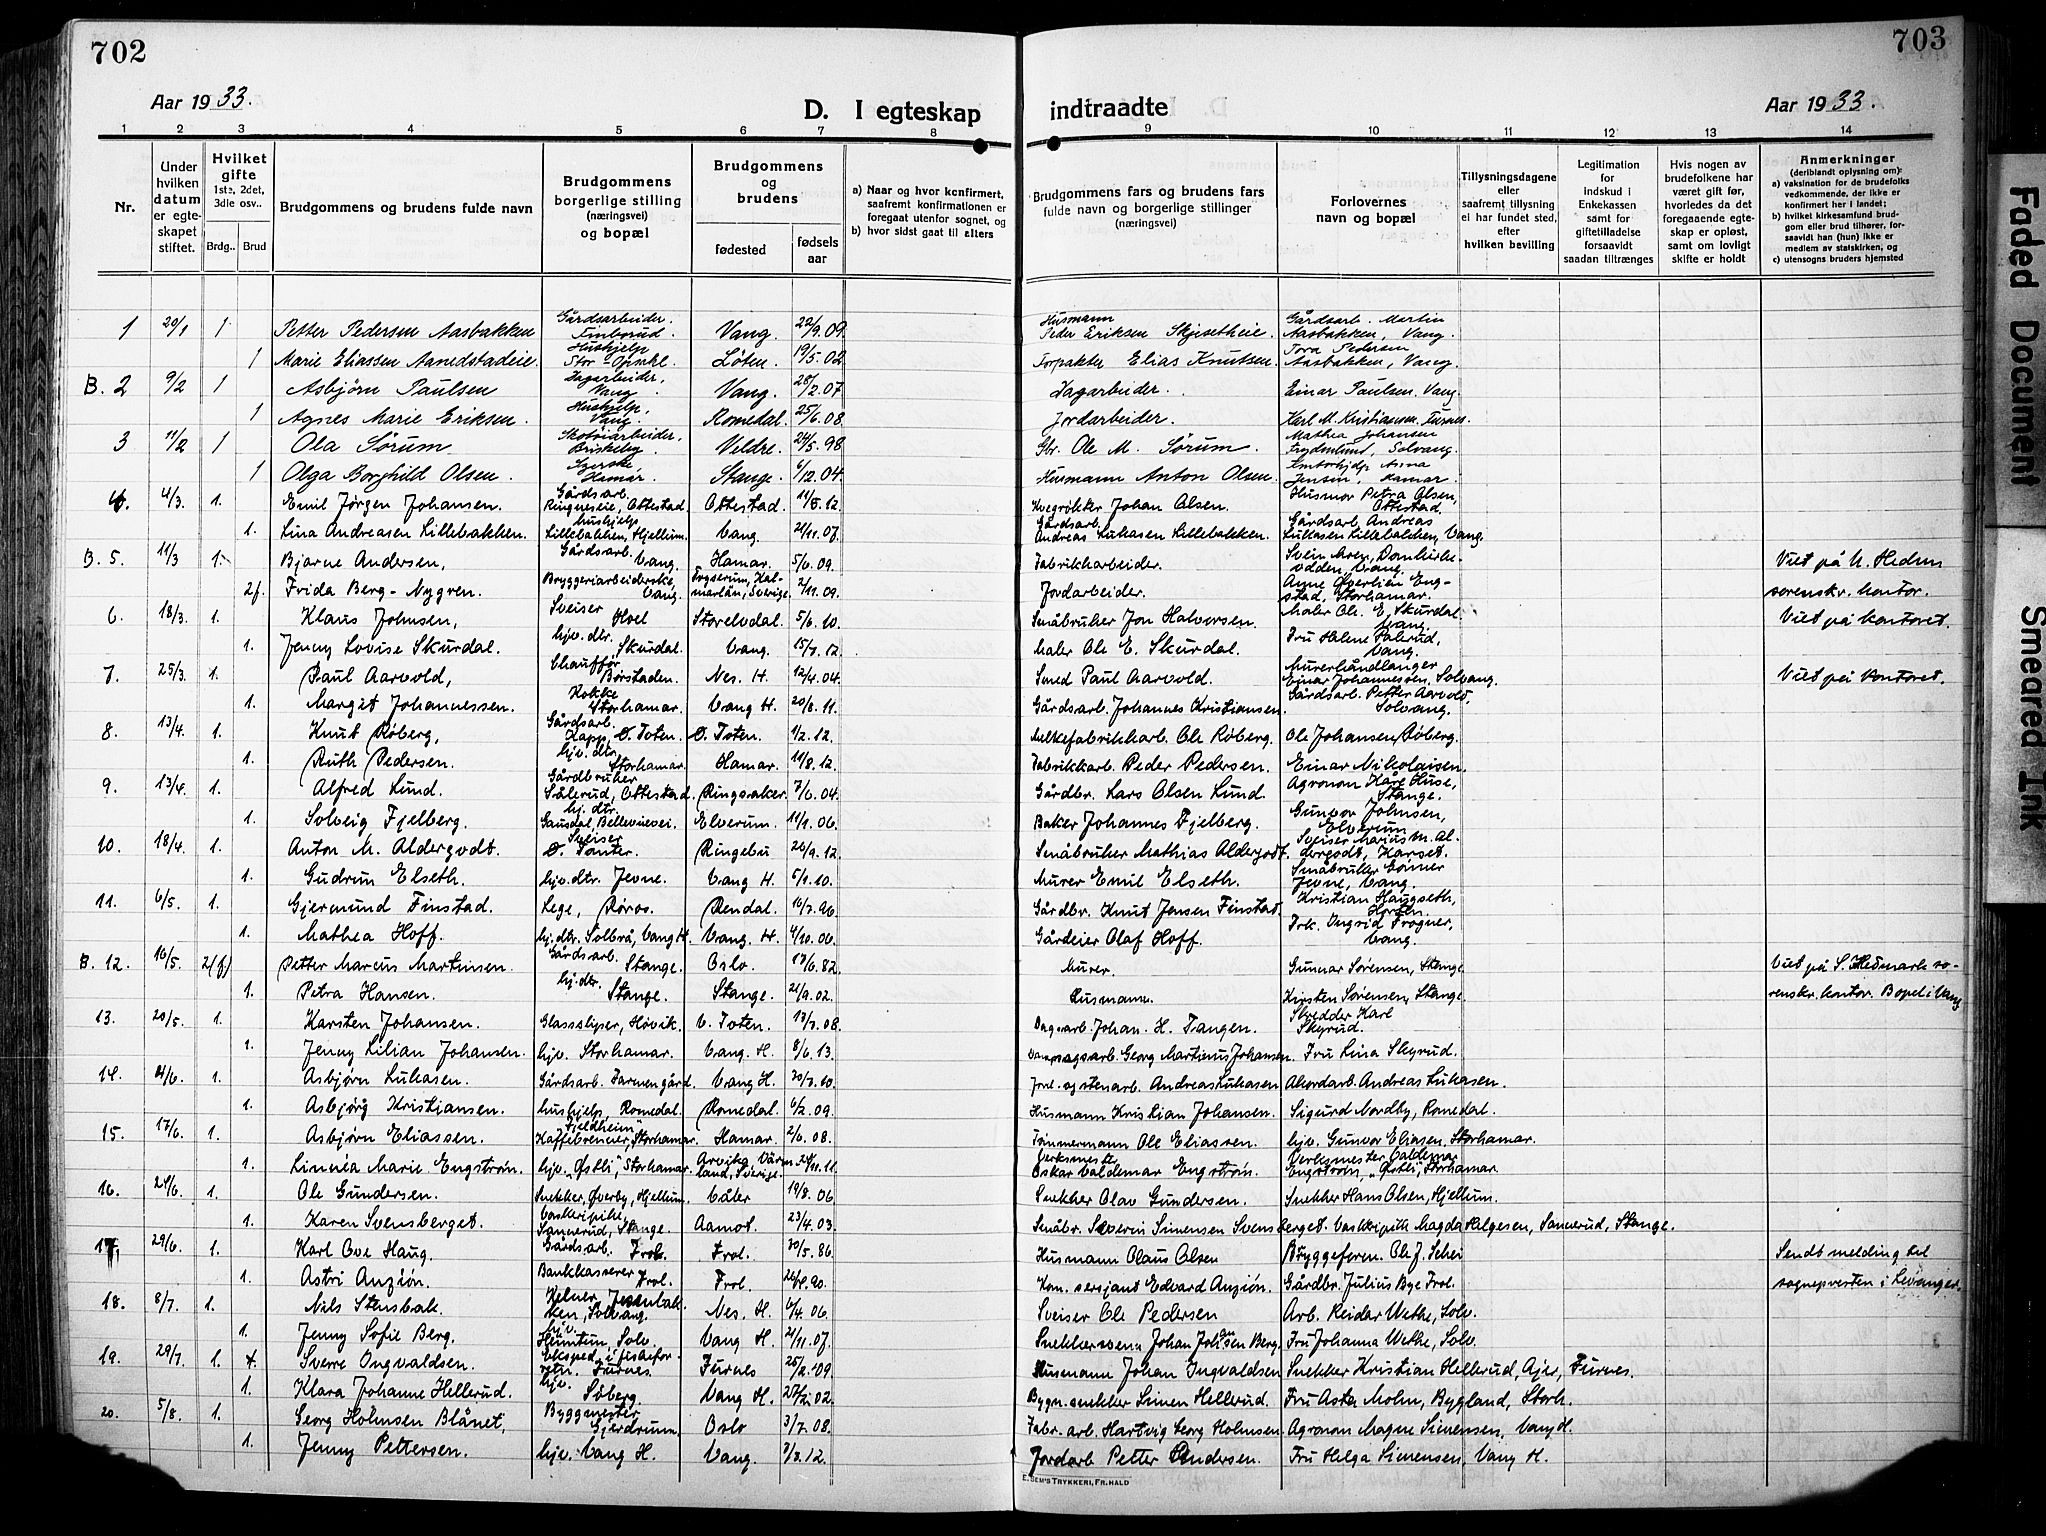 702
Aar 1933.
D. I egteskap
1 2 3 4 5 6 7 8
Nr.
Under hvilken datum er egteskapet stiftet.
Hvilket gifte 1ste, 2det, 3die osv..
Brdg.. Brud
Brudgommens og brudens fulde navn
Brudgommens borgerlige stilling (næringsvei) og bopæl
Brudgommens og brudens
fødested fødsels aar
a) Naar og hvor konfirmert, saafremt konfirmationen er foregaat utenfor sognet, og
b) hvor sidst gaat til alters
1 20/1 1 Petter Pedersen Aasbakken Gårdsarbeider. Vang. 22/9.09.
1 Marie Eliassen Hushjelp Løten. 19/5.02.
B. 2 9/2 1 Asbjørn Paulsen Dagarbeider, Vang Vang. 28/2.07
1 Agnes Marie Eriksen. Hushjelp, Vang. Romedal. 25/6.08
3 11/2 1 Ola Sørum Skotøiarbeider, Briskeby Veldre. 24/5.98
1 Olga Borghild Olsen. Hamar. Stange. 6/12.04.
4. 4/3. 1. Emil Jørgen Johansen. Gårdsarb. Ringneseie, Ottestad Ottestad. 11/5.12.
1. Lina Andreasen Lillebakken. hushjelp Lillebakken, Hjellum. Vang. 21/11.07.
B. 5. 11/3 1. Bjarne Andersen, Gårdsarb. Vang. Hamar. 5/6.09.
2f. Frida Berg-Nygren. Bryggeriarbeiderske, Vang. Sverige. 2/11.09.
6. 18/3. 1. Klaus Johnsen, Sveiser Hoel Storelvdal. 5/6.10.
1. Jenny Lovise Skurdal. hjv. dtr. Skurdal. Vang. 15/7.12.
7. 25/3. 1. Paul Aarvold, Chauffør Børstaden. Nes. H. 12/4.04.
1. Margit Johannessen. Kokke Storhamar. Vang H. 20/6.11.
8. 13/4. 1. Knut Røberg, Gårdsarb. Kapp, Ø. Toten. Ø. Toten. 1/2.12.
1. Ruth Pedersen. hjv. dtr. Storhamar. Hamar. 11/8.12.
9. 13/4. 1. Alfred Lund. Gårdbruker Sålerud, Ottestad. Ringsaker. 7/6.04.
1. Solveig Fjelberg. hj. dtr. Gausdal, Bellevuevei. Elverum. 11/1.06.
10. 18/4. 1. Anton M. Aldergodt. Sveiser Ringebu 26/9.12.
1. Gudrun Elseth. hjv. dtr. Jevne. Vang H. 5/1.10.
11. 6/5. 1. Gjermund Finstad. Lege, Røros. Rendal. 16/7.96
1. Mathea Hoff. hj. dtr. Solbrå, Vang H. Vang. H. 4/10.06.
B. 12. 16/5. 2(f) Petter Marcus Martinsen. Gårdsarb. Stange. Oslo. 13/6.82.
1. Petra Hansen. hj. dtr. Stange. Stange. 21/9.02.
13. 20/5. 1. Karsten Johansen. Glassliper, Høvik. V. Toten. 13/7.08.
1. Jenny Lilian Johansen. hjv. Storhamar. Vang. H. 8/6.13.
14. 4/6. 1. Asbjørn Lukasen. Gårdsarb. Farmengård. Vang H. 20/7.10.
1. Asbjørg Kristiansen. hushjelp, Romedal. Romedal. 6/2.09.
15. 17/6. 1. Asbjørn Eliassen. "Fjeldheim" Kaffebrenner, Storhamar. Hamar. 2/6.08.
1. Linnéa Marie Engstrøm. hjv. "Østli", Storhamar. Arvika Värmland, Sverige. 24/11.11.
16. 24/6. 1. Ole Gundersen. Snekker, Øverby, Hjellum. Våler 19/8.06
1. Karen Svensberget. Vaskeripike, Sannerud, Stange. Aamot. 23/4.03.
17. 29/6. 1. Karl Ove Haug. Gårdsarb. Frol. Frol. 30/5.86.
1. Astri Anziøn. Bankkasserer Frol. Frol.
18. 8/7. 1. Nils Stensbak. Kelner, Solvang. Nes. H. 6/4.06.
1. Jenny Sofie Berg. hjv. Heimtun, Solv. Vang H. 21/11.07.
19. 29/7. 1. Sverre Ingvaldsen. Eksped. i Furnes. Furnes 25/2.09
1. Klara Johanne Hellerud. hjv. Søberg. Vang H. 02.
20. 5/8. 1. Georg Holmsen Blånet, Byggmester Gjerdrum. Oslo 3/7.08.
1. Jenny Pettersen. hjv. Vang H. Vang. 7/3.12.
703
Aar 1933.
indtraadte
9 10 11 12 13 14
Brudgommens fars og brudens fars fulde navn og borgerlige stillinger (næringsvei)
Forlovernes navn og bopæl
Tillysningsdagene eller saafremt tillysning ei har fundet sted, efter hvilken bevilling
Legitimation for indskud i Enkekassen samt for giftetilladelse forsaavidt saadan tiltrænges
Hvis nogen av brudefolkene har været gift før, hvorledes da det foregaaende egteskap er opløst, samt om lovligt skifte er holdt
Anmerkninger (deriblandt oplysning om):
a) vaksination for de brudefolks vedkommende, der ikke er konfirmert her i landet;
b) hvilket kirkesamfund brudgom eller brud tilhører, forsaavidt han (hun) ikke er medlem av statskirken, og
c) utensogns bruders hjemsted
Husmann Peder Eriksen Skjesetheie. Gårdsarb. Martin Aasbakken, Vang.
Forpakter Elias Knutsen. Tora Pedersen Aasbakken, Vang.
Dagarbeider. Einar Paulsen. Vang.
Jordarbeider. Karl M. Kristiansen. Furnes.
Gbr. Ole M. Sørum. Mathea Johansen Frydenlund, Solvang.
Husmann Anton Olsen. Anna Jensen, Hamar.
Kvegrøkter Johan Olsen. Husmor Petra Olsen, Ottestad.
Gårdsarb. Andreas Lukasen Lillebakken. Gårdsarb. Andreas Lukasen Lillebakken, Vang.
Fabrikkarbeider. Svein Vang. Viet på N. Hedm.
Jordarbeider. Storhamar. sorenskr. kontor.
Småbruker Jon Halvorsen. Maler Ole E. Skurdal. Vang. Viet på kontoret.
Maler Ole E. Skurdal. Fru Helene Vang.
Smed Paul Aarvold. Murerhåndlanger Einar Johannessen, Solvang. Viet på kontoret.
Gårdsarb. Johannes Kristiansen. Gårdsarb. Petter Aarvold, Solvang.
Melkefabrikkarb. Ole Røberg. Ole Johansen Røberg.
Fabrikkarb. Peder Pedersen. Einar Nikolaisen.
Gårdbr. Lars Olsen Lund. Agronom Kåre Huse, Stange.
Baker Johannes Fjelberg. Gunvor Johnsen, Elverum.
Småbruker Mathias Aldergodt. Sveiser Marius M. Aldergodt,
Murer Emil Elseth. Småbruker Jevne, Vang.
Gårdbr. Knut Jensen Finstad. Kristian Haugseth, Horten.
Gårdeier Olaf Hoff. Frk. Ingrid Frogner, Vang.
Murer. Gunnar Sørensen, Stange. Viet på S. Hedmark so-
Husmann. Kirsten Sørensen, Stange. renskr. kontor. Bopel i Vang
Dagarb. Johan. H. Tangen. Skredder Karl Skyrud.
Georg Martinius Johansen. Fru Lina Skyrud.
Jord- og stenarb. Andreas Lukasen Akordarb. Andreas Lukasen.
Husmann Kristian Johansen. Sigurd Nordby, Romedal.
Tømmermann Ole Eliassen. hjv. Gunvor Eliasen, Storhamar.
Verksmester Oskar Valdemar Engstrøm. Verksmester Valdemar Engstrøm, "Østli", Storhamar.
Snekker Olav Gundersen. Snekker Hans Olsen, Hjellum.
Småbr. Severin Simensen Svensberget. Magda Helgesen, Sannerud, Stange.
Husmann Olaus Olsen Byggeform. Ole J. Schei Sendt melding til
Kom. sersjant Edvard Anziøn. Gårdbr. Julius Bye Frol. sognepresten i Levanger.
Sveiser Ole Pedersen Arb. Reidar Wethe, Solv.
Johan Johansen Berg. Fru Johanna Wethe, Solv.
Husmann Johan Ingvaldsen Snekker Kristian Hellerud, Ajer, Furnes.
Bygn. snekker Simen Hellerud. Fru Asta Mohn, Bygland, Storh.
Fabr. arb. Hartvig Georg Holmsen Agronom Magne Simensen, Vang H.
Jordarb Petter Andersen. Fru Helga Simensen, Vang H.
E. SEM'S TRYKKERI, FR.HALD
Faded Document
Smeared Ink